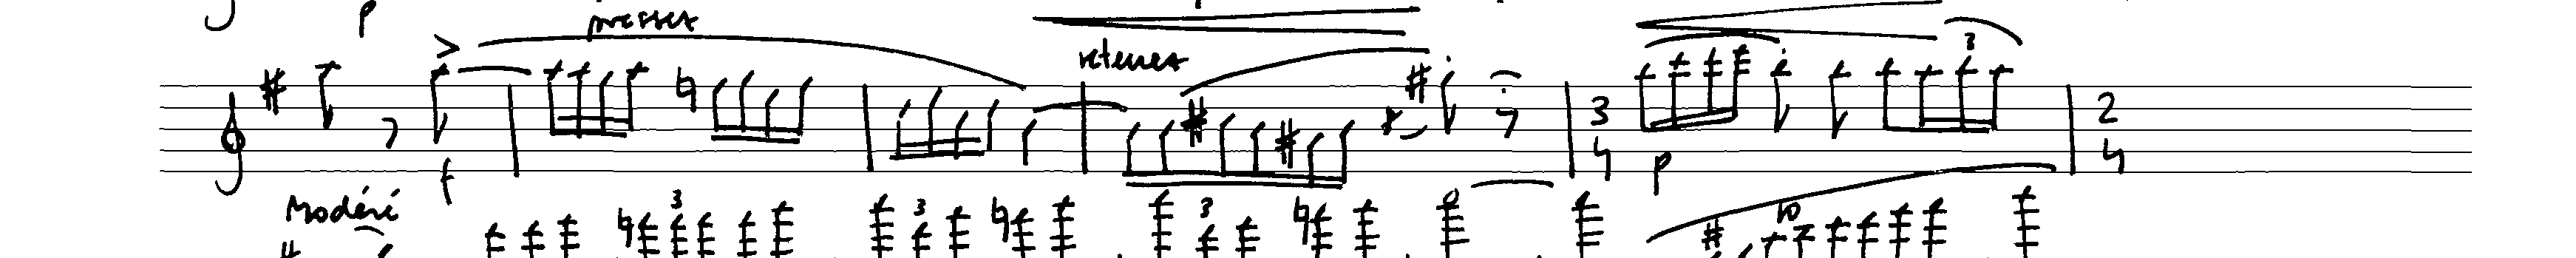 p
pressez
retenez
3
f
3
4
p
2
4
Modéré
3
3
3
10